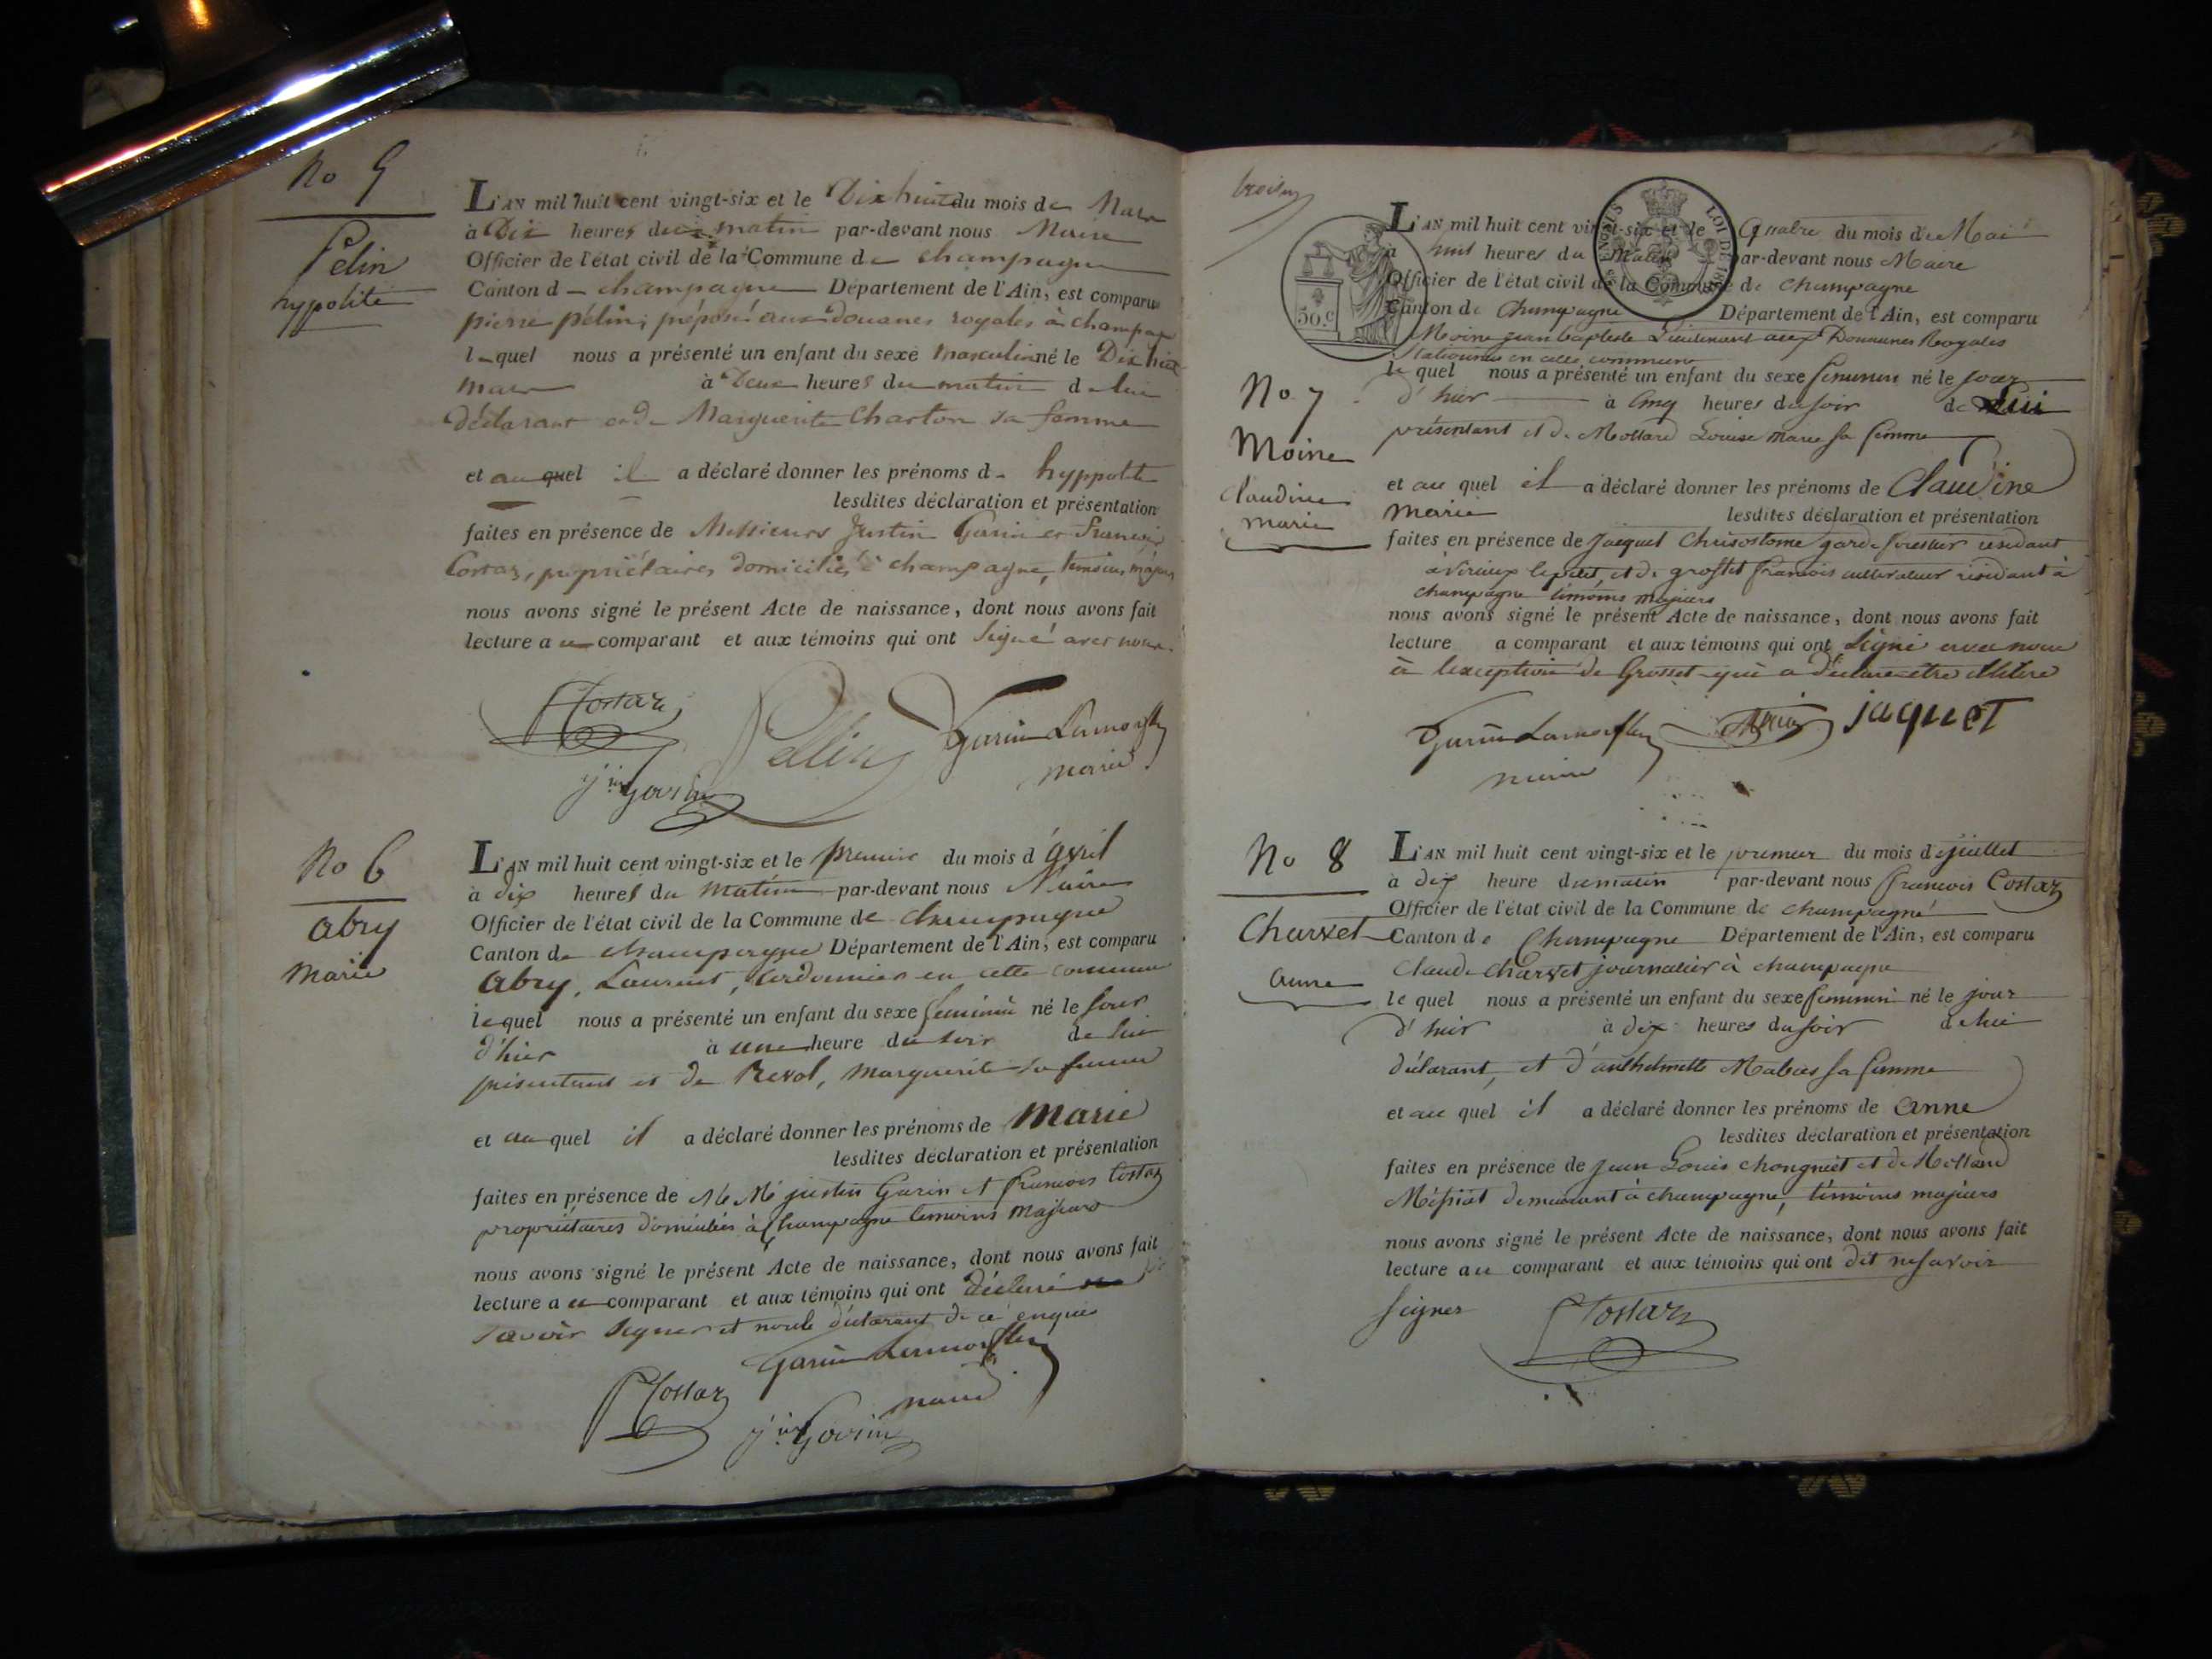 No 5
Pelin
hyppolite
L'AN mil huit cent vingt-six et le Dix huit du mois de Mars
à Dix heures du matin par-devant nous Maire
Officier de l'état civil de la Commune de champagne
Canton d - champagne Département de l'Ain, est comparu
pierre pélin, préposé aux Douanes royales à champagne
lequel nous a présenté un enfant du sexe masculin né le Dix huit
mars à Deux heures du matin de lui
déclarant et de Marguerite Charton sa femme
et au quel il a déclaré donner les prénoms d- hyppolite
lesdites déclaration et présentation
faites en présence de Messieurs Justin Garin et François
Costaz, propriétaires domiciliés à champagne, témoins majeurs
nous avons signé le présent Acte de naissance, dont nous avons fait
lecture au comparant et aux témoins qui ont signé avec nous.
Costaz
Pellin
Garin
maire
Garin
No 6
abry
marie
L'AN mil huit cent vingt-six et le premier du mois d'avril
à dix heures du matin par-devant nous Maire
Officier de l'état civil de la Commune de champagne
Canton de champagne Département de l'Ain, est comparu
abry, Laurent, Cordonnier en cette commune
lequel nous a présenté un enfant du sexe feminin né le jour
d'hier à une heure du soir de lui
présentant et de Revol, marguerite sa femme
et au quel il a déclaré donner les prénoms de marie
lesdites déclaration et présentation
faites en présence de M M justin Garin et francois Costaz
propriétaires domiciliés à Champagne témoins majeurs
nous avons signé le présent Acte de naissance, dont nous avons fait
lecture au comparant et aux témoins qui ont déclaré
savoir signer et non le déclarant de ce enquis
Garin
Costaz
maire
Garin
30.C
LOI DE
No 7
Moine
claudine
marie
L'AN mil huit cent vingt-six et le Quatre du mois de Mai
à huit heures du matin par-devant nous Maire
Officier de l'état civil de la Commune de champagne
Canton de Champagne Département de l'Ain, est comparu
Moine jean baptiste Lieutenant aux Douannes Royales
Stationné en cette commune
le quel nous a présenté un enfant du sexe feminin né le jour
d'hier à cinq heures du soir de Lui
présentant et de Mollard Louise marie sa femme
et au quel il a déclaré donner les prénoms de Claudine
marie lesdites déclaration et présentation
faites en présence de Jacquet Chrisostome garde forestier residant
à virieux le petit, et de grosset francois cultivateur résidant à
champagne témoins majeurs
nous avons signé le présent Acte de naissance, dont nous avons fait
lecture a comparant et aux témoins qui ont signé avec nous
à l'exception de Grosset qui a déclaré être illitere
Garin
maire
jaquet
No 8
Charvet
anne
L'AN mil huit cent vingt-six et le premier du mois de juillet
à dix heure du matin par-devant nous francois Costaz
Officier de l'état civil de la Commune de champagne
Canton de Champagne Département de l'Ain, est comparu
Claude Charvet journalier à champagne
le quel nous a présenté un enfant du sexe feminin né le jour
d'hier à dix heures du soir de lui
déclarant, et d'anthelmette sa femme
et au quel il a déclaré donner les prénoms de anne
lesdites déclaration et présentation
faites en présence de jean Louis et de
demeurant à champagne, témoins majeurs
nous avons signé le présent Acte de naissance, dont nous avons fait
lecture au comparant et aux témoins qui ont dit ne savoir
signer
Costaz